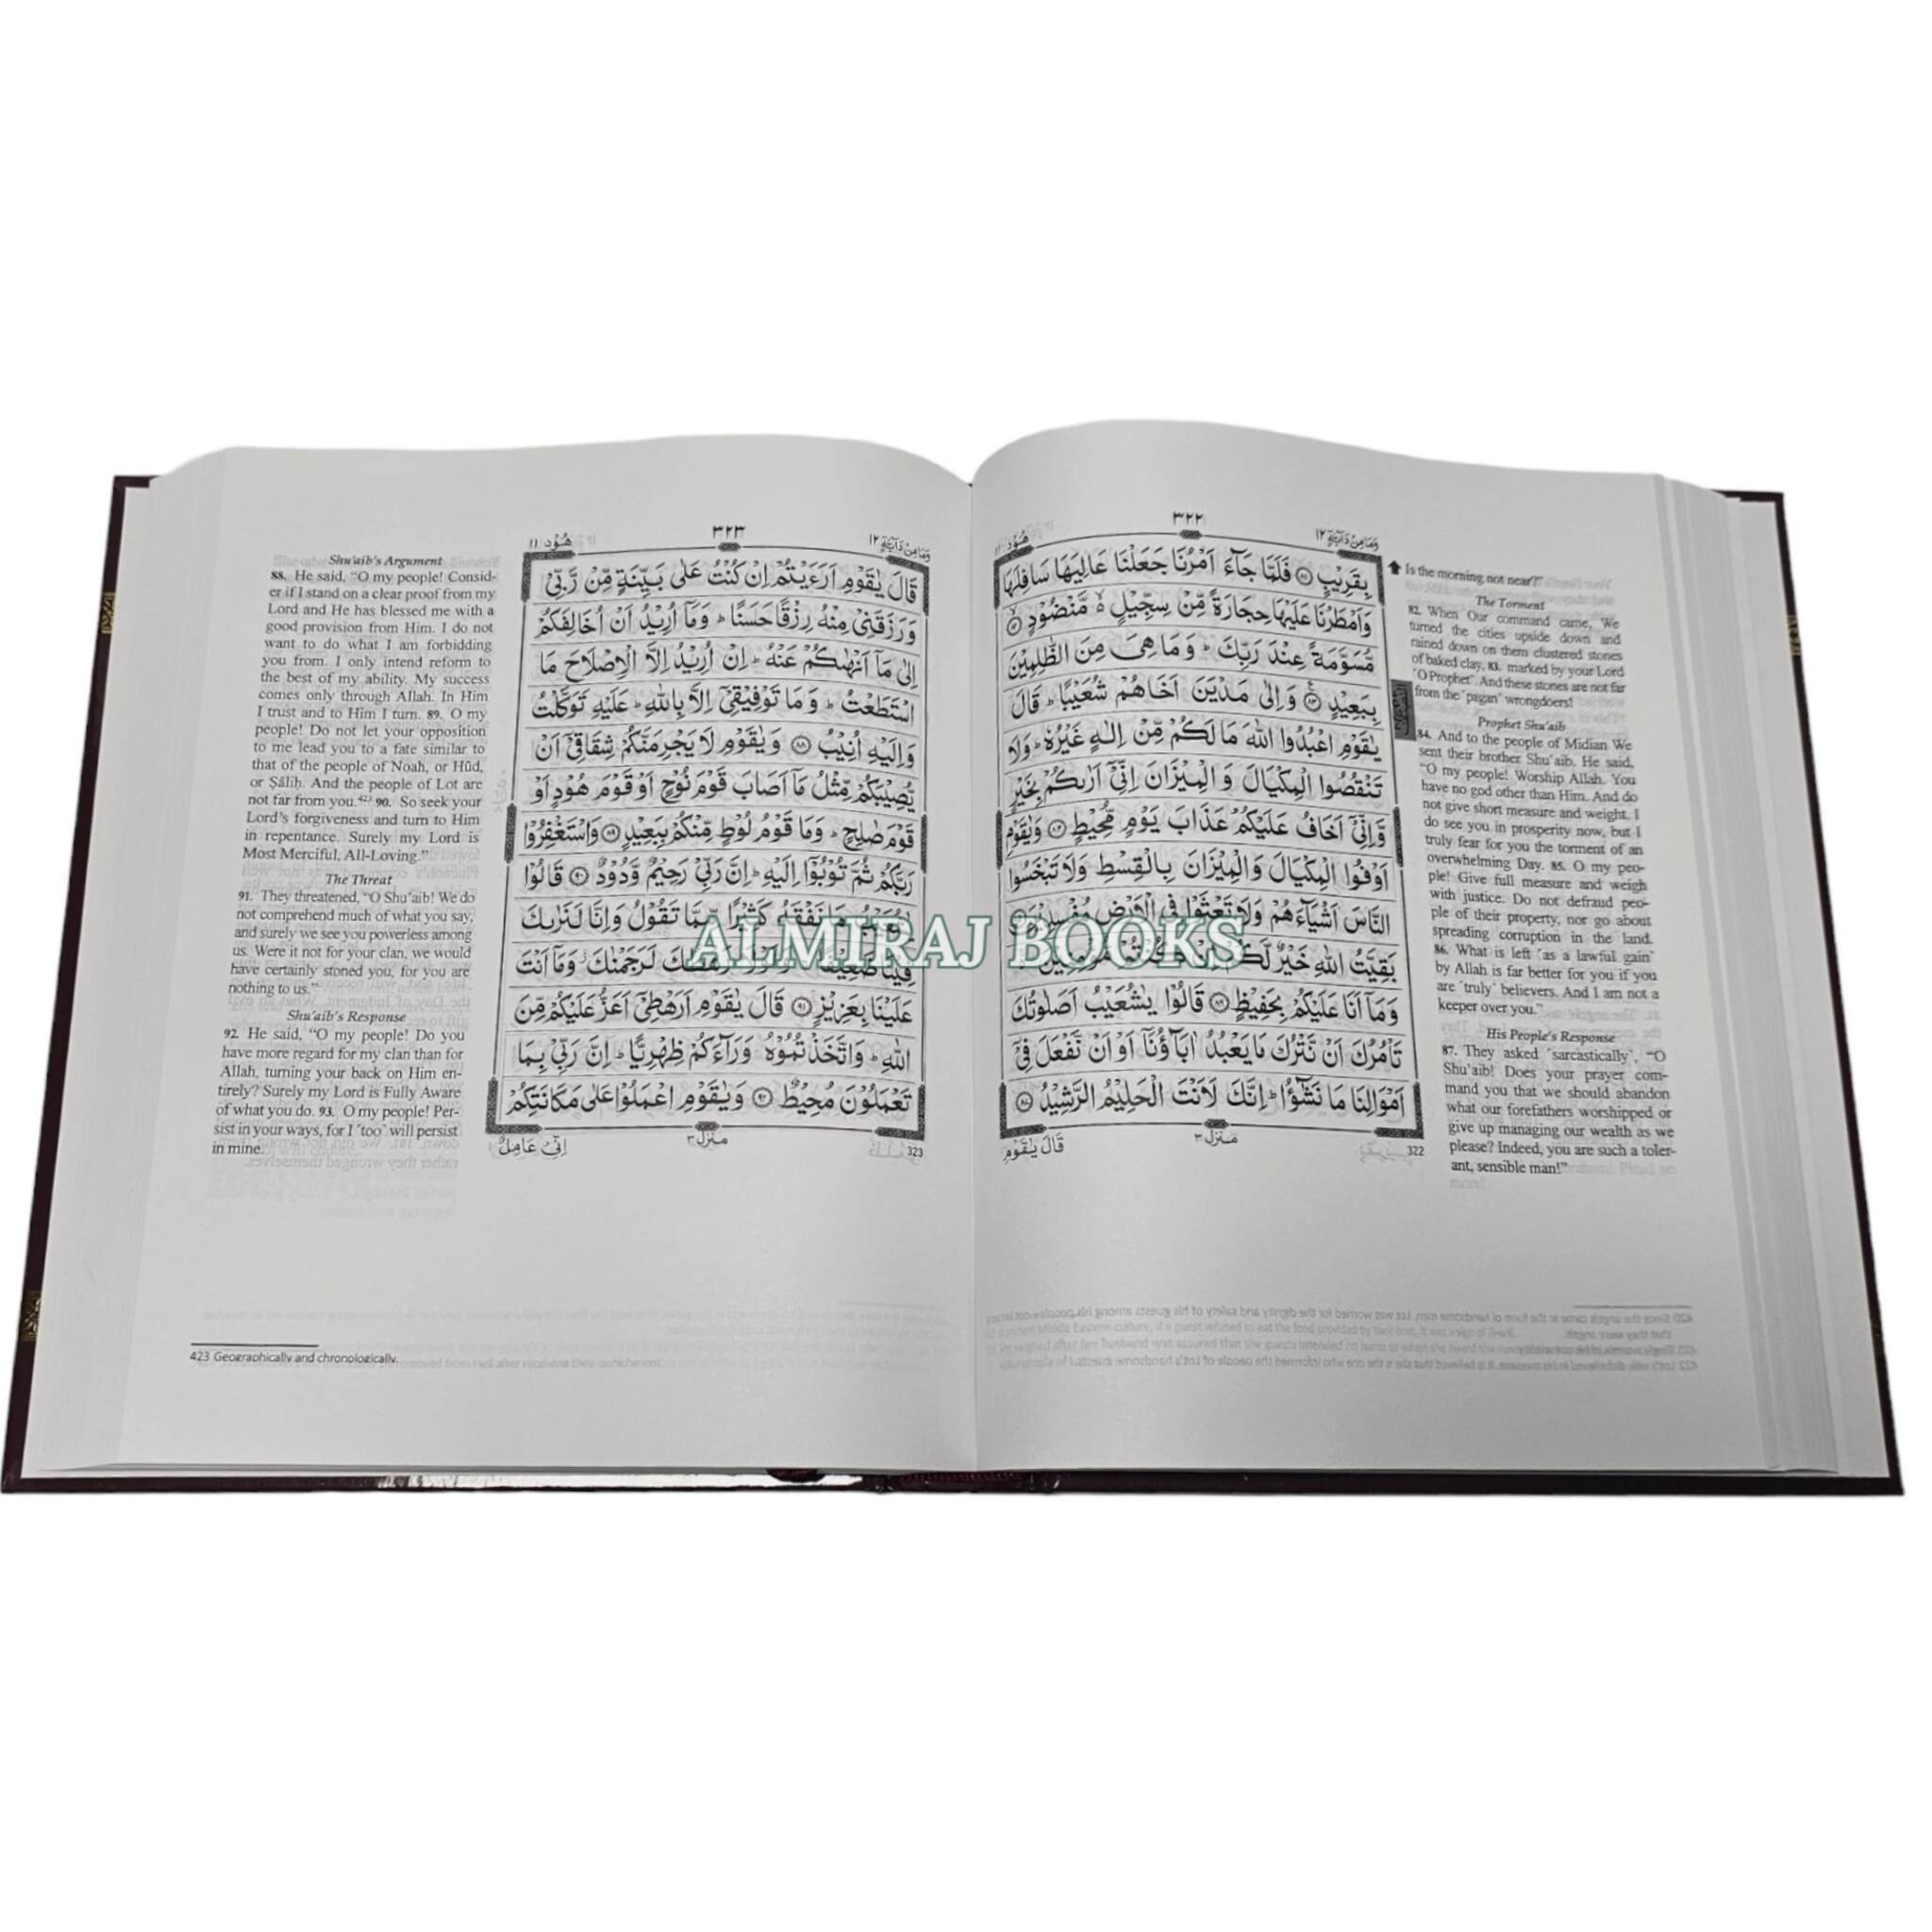 وَمَا مِنْ دَآبَّةٍ ١٢
٣٢٢
هُوْد ١١
بِقَرِيْبٍ ﴿٨١﴾ فَلَمَّا جَآءَ اَمْرُنَا جَعَلْنَا عَالِيَهَا سَافِلَهَا
وَاَمْطَرْنَا عَلَيْهَا حِجَارَةً مِّنْ سِجِّيْلٍ ۙ مَّنْضُوْدٍ ﴿٨٢﴾
مُّسَوَّمَةً عِنْدَ رَبِّكَ ؕ وَمَا هِىَ مِنَ الظّٰلِمِيْنَ
بِبَعِيْدٍ ﴿٨٣﴾ وَاِلٰى مَدْيَنَ اَخَاهُمْ شُعَيْبًا ؕ قَالَ
يٰقَوْمِ اعْبُدُوا اللّٰهَ مَا لَكُمْ مِّنْ اِلٰهٍ غَيْرُهٗ ؕ وَلَا
تَنْقُصُوا الْمِكْيَالَ وَالْمِيْزَانَ اِنِّىْۤ اَرٰىكُمْ بِخَيْرٍ
وَّاِنِّىْۤ اَخَافُ عَلَيْكُمْ عَذَابَ يَوْمٍ مُّحِيْطٍ ﴿٨٤﴾ وَيٰقَوْمِ
اَوْفُوا الْمِكْيَالَ وَالْمِيْزَانَ بِالْقِسْطِ وَلَا تَبْخَسُوا
النَّاسَ اَشْيَآءَهُمْ وَلَا تَعْثَوْا فِى الْاَرْضِ مُفْسِدِيْنَ ﴿٨٥﴾
بَقِيَّتُ اللّٰهِ خَيْرٌ لَّكُمْ اِنْ كُنْتُمْ مُّؤْمِنِيْنَ
وَمَاۤ اَنَا عَلَيْكُمْ بِحَفِيْظٍ ﴿٨٦﴾ قَالُوْا يٰشُعَيْبُ اَصَلٰوتُكَ
تَاْمُرُكَ اَنْ نَّتْرُكَ مَا يَعْبُدُ اٰبَآؤُنَاۤ اَوْ اَنْ نَّفْعَلَ فِىْۤ
اَمْوَالِنَا مَا نَشٰٓؤُا ؕ اِنَّكَ لَاَنْتَ الْحَلِيْمُ الرَّشِيْدُ ﴿٨٧﴾
مَنْزِل ٣
قَالَ يٰقَوْمِ
322
Is the morning not near?”
The Torment
82. When Our command came, We
turned the cities upside down and
rained down on them clustered stones
of baked clay, 83. marked by your Lord
˹O Prophet˺. And these stones are not far
from the ˹pagan˺ wrongdoers!
Prophet Shu’aib
84. And to the people of Midian We
sent their brother Shu’aib. He said,
“O my people! Worship Allah. You
have no god other than Him. And do
not give short measure and weight. I
do see you in prosperity now, but I
truly fear for you the torment of an
overwhelming Day. 85. O my peo-
ple! Give full measure and weigh
with justice. Do not defraud peo-
ple of their property, nor go about
spreading corruption in the land.
86. What is left ˹as a lawful gain˺
by Allah is far better for you if you
are ˹truly˺ believers. And I am not a
keeper over you.”
His People's Response
87. They asked ˹sarcastically˺, “O
Shu’aib! Does your prayer com-
mand you that we should abandon
what our forefathers worshipped or
give up managing our wealth as we
please? Indeed, you are such a toler-
ant, sensible man!”
وَمَا مِنْ دَآبَّةٍ ١٢
٣٢٣
هُوْد ١١
قَالَ يٰقَوْمِ اَرَءَيْتُمْ اِنْ كُنْتُ عَلٰى بَيِّنَةٍ مِّنْ رَّبِّىْ
وَرَزَقَنِىْ مِنْهُ رِزْقًا حَسَنًا ؕ وَمَاۤ اُرِيْدُ اَنْ اُخَالِفَكُمْ
اِلٰى مَاۤ اَنْهٰىكُمْ عَنْهُ ؕ اِنْ اُرِيْدُ اِلَّا الْاِصْلَاحَ مَا
اسْتَطَعْتُ ؕ وَمَا تَوْفِيْقِىْۤ اِلَّا بِاللّٰهِ ؕ عَلَيْهِ تَوَكَّلْتُ
وَاِلَيْهِ اُنِيْبُ ﴿٨٨﴾ وَيٰقَوْمِ لَا يَجْرِمَنَّكُمْ شِقَاقِىْۤ اَنْ
يُّصِيْبَكُمْ مِّثْلُ مَاۤ اَصَابَ قَوْمَ نُوْحٍ اَوْ قَوْمَ هُوْدٍ اَوْ
قَوْمَ صٰلِحٍ ؕ وَمَا قَوْمُ لُوْطٍ مِّنْكُمْ بِبَعِيْدٍ ﴿٨٩﴾ وَاسْتَغْفِرُوْا
رَبَّكُمْ ثُمَّ تُوْبُوْۤا اِلَيْهِ ؕ اِنَّ رَبِّىْ رَحِيْمٌ وَّدُوْدٌ ﴿٩٠﴾ قَالُوْا
يٰشُعَيْبُ مَا نَفْقَهُ كَثِيْرًا مِّمَّا تَقُوْلُ وَاِنَّا لَنَرٰىكَ
فِيْنَا ضَعِيْفًا ۚ وَلَوْلَا رَهْطُكَ لَرَجَمْنٰكَ ؗ وَمَاۤ اَنْتَ
عَلَيْنَا بِعَزِيْزٍ ﴿٩١﴾ قَالَ يٰقَوْمِ اَرَهْطِىْۤ اَعَزُّ عَلَيْكُمْ مِّنَ
اللّٰهِ ؕ وَاتَّخَذْتُمُوْهُ وَرَآءَكُمْ ظِهْرِيًّا ؕ اِنَّ رَبِّىْ بِمَا
تَعْمَلُوْنَ مُحِيْطٌ ﴿٩٢﴾ وَيٰقَوْمِ اعْمَلُوْا عَلٰى مَكَانَتِكُمْ
مَنْزِل ٣
اِنِّىْ عَامِلٌ
323
Shu’aib’s Argument
88. He said, “O my people! Consid-
er if I stand on a clear proof from my
Lord and He has blessed me with a
good provision from Him. I do not
want to do what I am forbidding
you from. I only intend reform to
the best of my ability. My success
comes only through Allah. In Him
I trust and to Him I turn. 89. O my
people! Do not let your opposition
to me lead you to a fate similar to
that of the people of Noah, or Hûd,
or Ṣâliḥ. And the people of Lot are
not far from you.⁴²³ 90. So seek your
Lord’s forgiveness and turn to Him
in repentance. Surely my Lord is
Most Merciful, All-Loving.”
The Threat
91. They threatened, “O Shu’aib! We do
not comprehend much of what you say,
and surely we see you powerless among
us. Were it not for your clan, we would
have certainly stoned you, for you are
nothing to us.”
Shu’aib’s Response
92. He said, “O my people! Do you
have more regard for my clan than for
Allah, turning your back on Him en-
tirely? Surely my Lord is Fully Aware
of what you do. 93. O my people! Per-
sist in your ways, for I ˹too˺ will persist
in mine.
423 Geographically and chronologically.
ALMIRAJ BOOKS